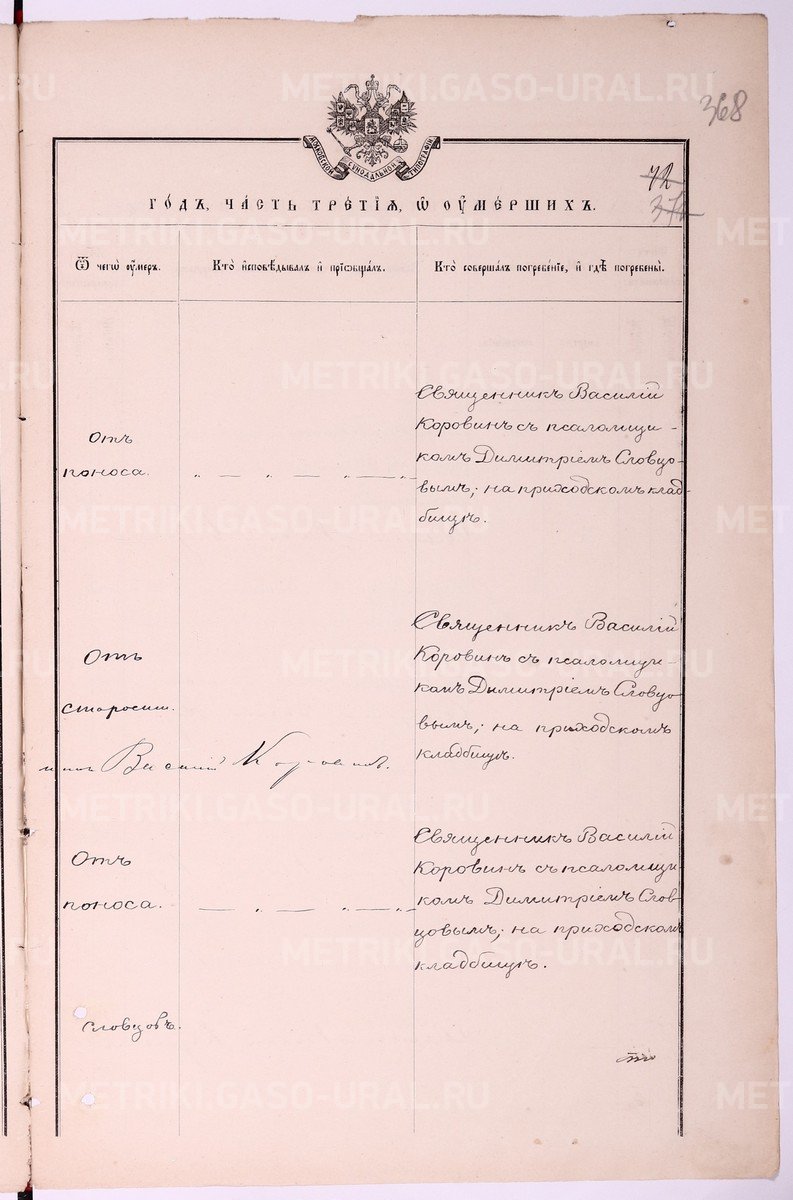 368
МОСКОВСКОЙ СѴНОДАЛЬНОЙ ТИПОГРАФІИ
72
374
ГОДЪ, ЧАСТЬ ТРЕТІЯ, Ѡ ОУМЕРШИХЪ.
Ѿ чегѡ оумеръ.
Кто исповѣдывалъ и пріѡбщалъ.
Кто совершалъ погребеніе, и гдѣ погребены.
Отъ
поноса.
Священникъ Василій
Коровинъ съ псаломщи-
комъ Димитріемъ Словцо-
вымъ; на приходскомъ клад-
бищѣ.
Отъ
старости.
Священникъ Василій
Коровинъ съ псаломщи-
комъ Димитріемъ Словцо
вымъ; на приходскомъ
кладбищѣ.
Василій Коровинъ.
Отъ
поноса.
Священникъ Василій
Коровинъ съ псаломщи-
комъ Димитріемъ Слов-
цовымъ; на приходскомъ
кладбищѣ.
Словцовъ.
METRIKI.GASO-URAL.RU